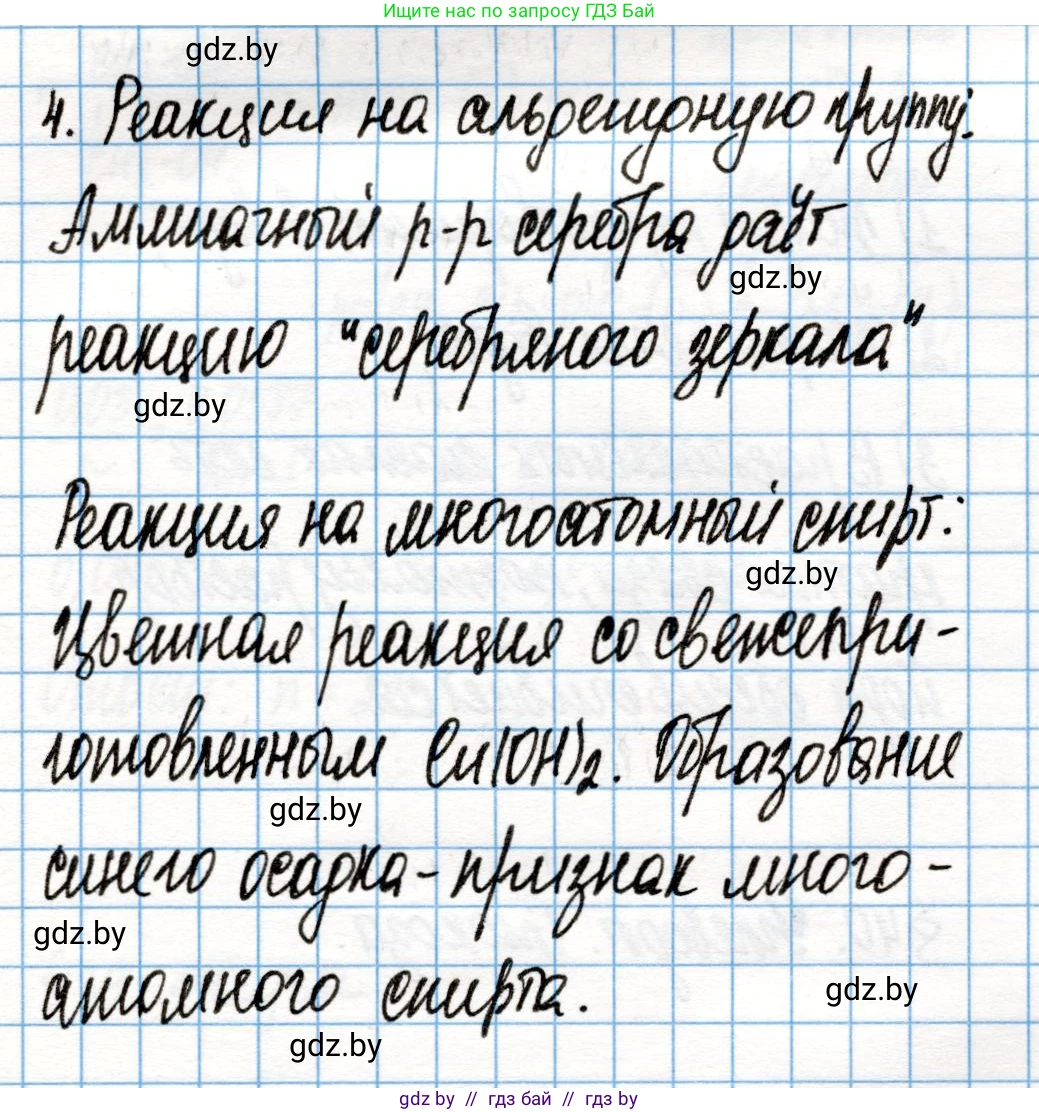 Ищите нас по запросу ГДЗ Бай
gdz.by
4. Реакция на альдегидную группу.
Аммиачный р-р серебра даёт
gdz.by
реакцию "серебряного зеркала"
gdz.by
Реакция на многоатомный спирт:
gdz.by
Цветная реакция со свежепри-
готовленным Cu(OH)2. Образование
gdz.by
синего осадка - признак много-
gdz.by
атомного спирта.
gdz.by
gdz.by
gdz.by // гдз бай // гдз by